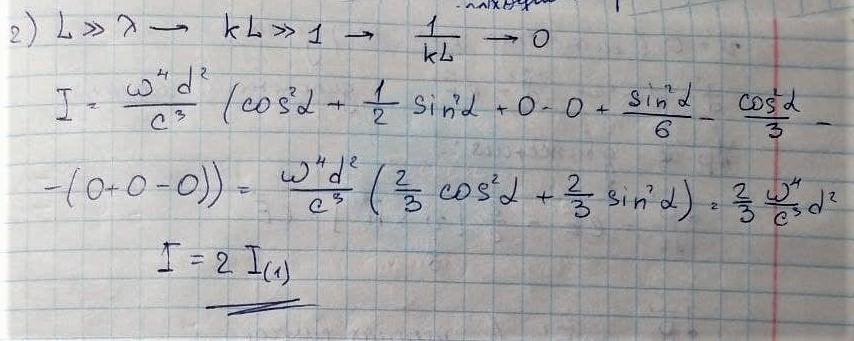 2) L ≫ λ → kL ≫ 1 → 1/kL → 0
I = ω⁴d²/c³ (cos²α + 1/2 sin²α + 0 - 0 + sin²α/6 - cos²α/3 -
-(0+0-0)) = ω⁴d²/c³ (2/3 cos²α + 2/3 sin²α) = 2/3 ω⁴/c³ d²
I = 2 I₍₁₎